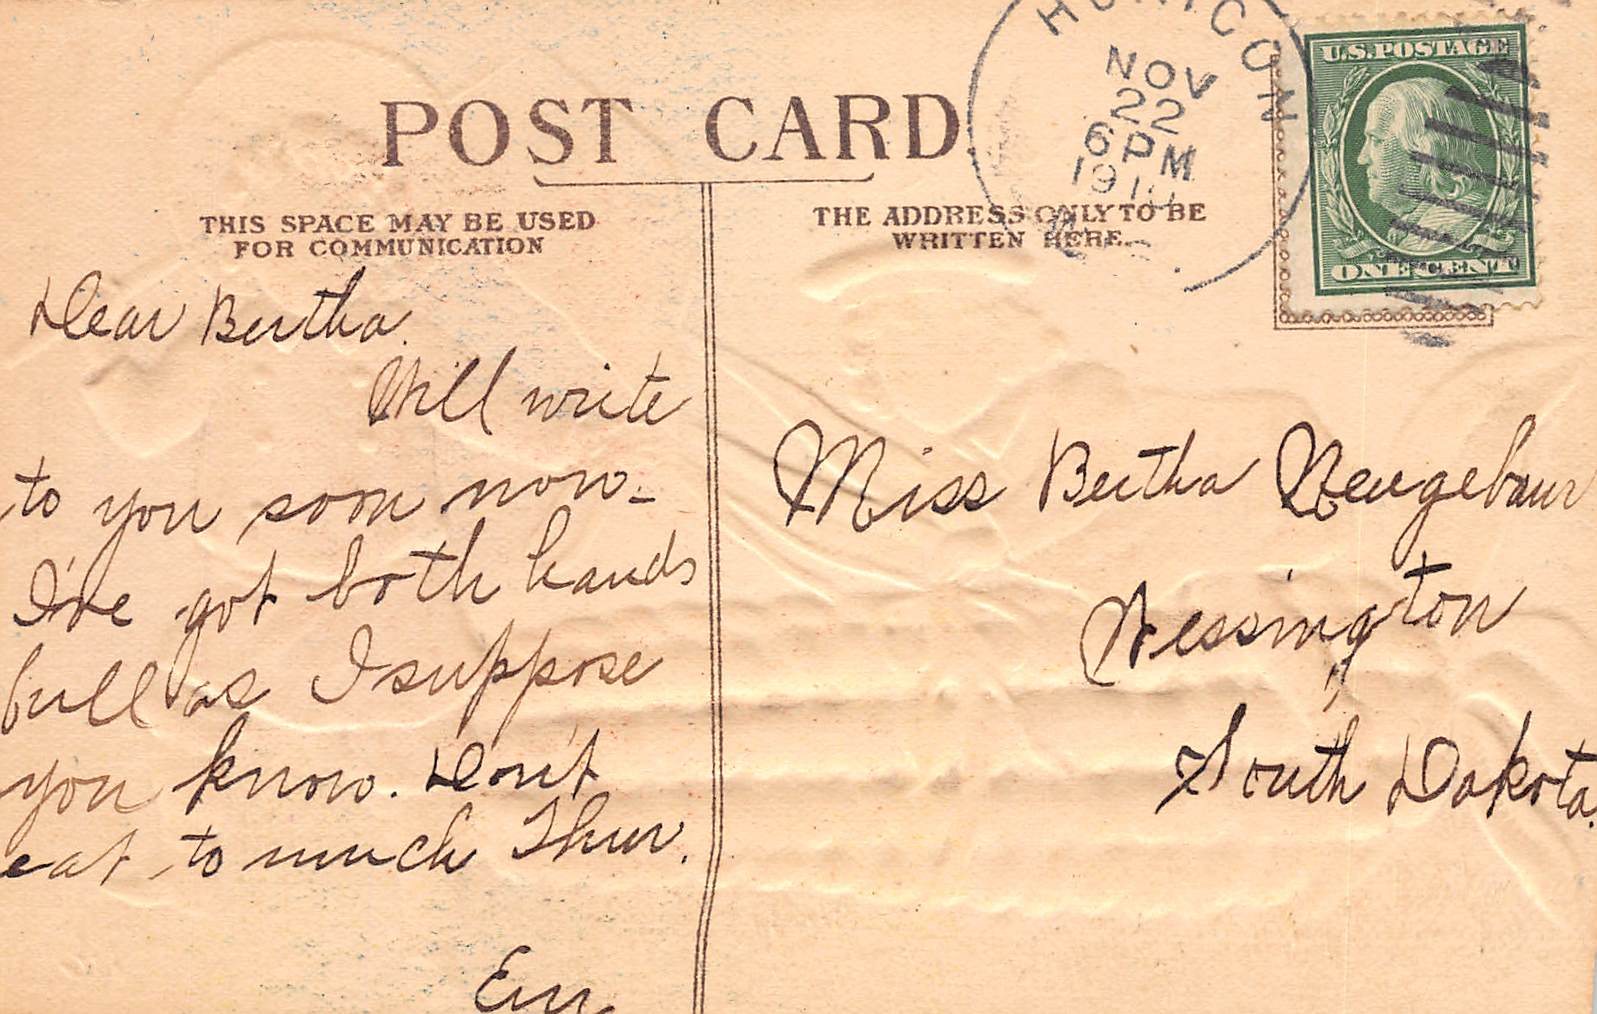 POST CARD
THIS SPACE MAY BE USED
FOR COMMUNICATION
THE ADDRESS ONLY TO BE
WRITTEN HERE
HORICON
NOV
22
6 PM
U.S. POSTAGE
ONE CENT
Dear Bertha.
Will write
to you soon now-
I've got both hands
full as I suppose
you know. Don't
eat to much Thur.
Miss Bertha Neugebaur
Wessington
South Dakota.